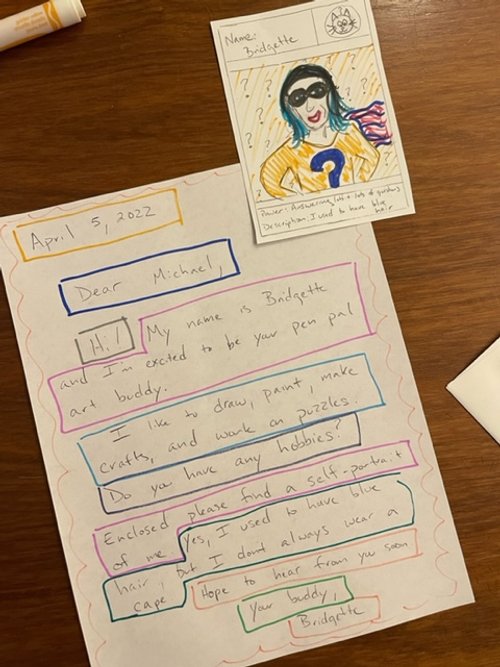 Name:
Bridgette
?
Power: Answering lots + lots of questions
Description: I used to have blue
hair
April 5, 2022
Dear Michael,
Hi! My name is Bridgette
and I'm excited to be your pen pal
art buddy.
I like to draw, paint, make
crafts, and work on puzzles.
Do you have any hobbies?
Enclosed please find a self-portrait
of me. Yes, I used to have blue
hair, but I dont always wear a
cape
Hope to hear from you soon
Your buddy,
Bridgette